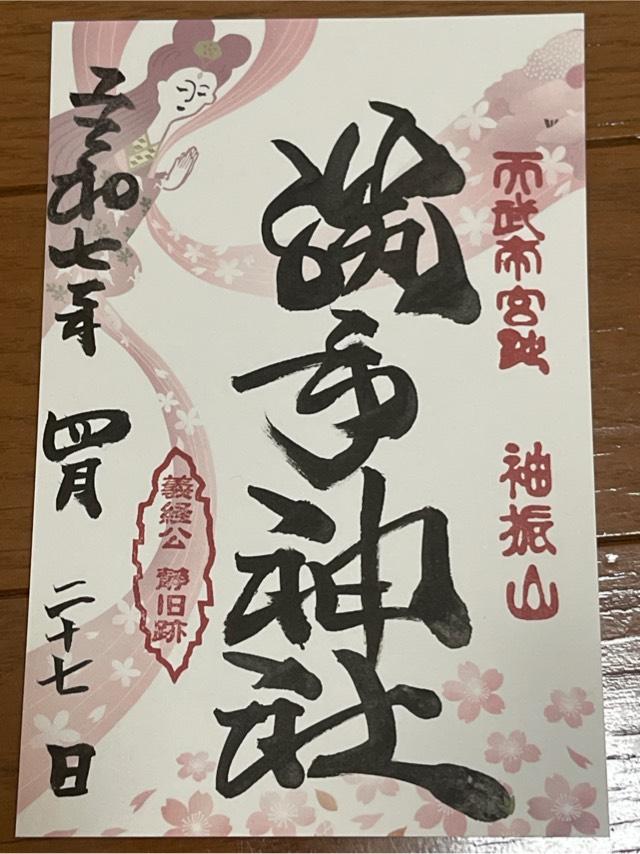 天武帝宮
袖振山
勝手神社
義経公 静旧跡
令和七年 四月 二十七日